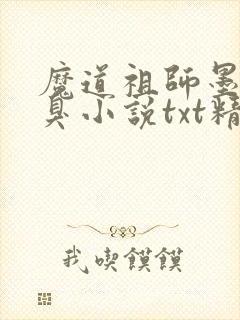 魔道祖師墨
臭小說txt精
我喫饃饃